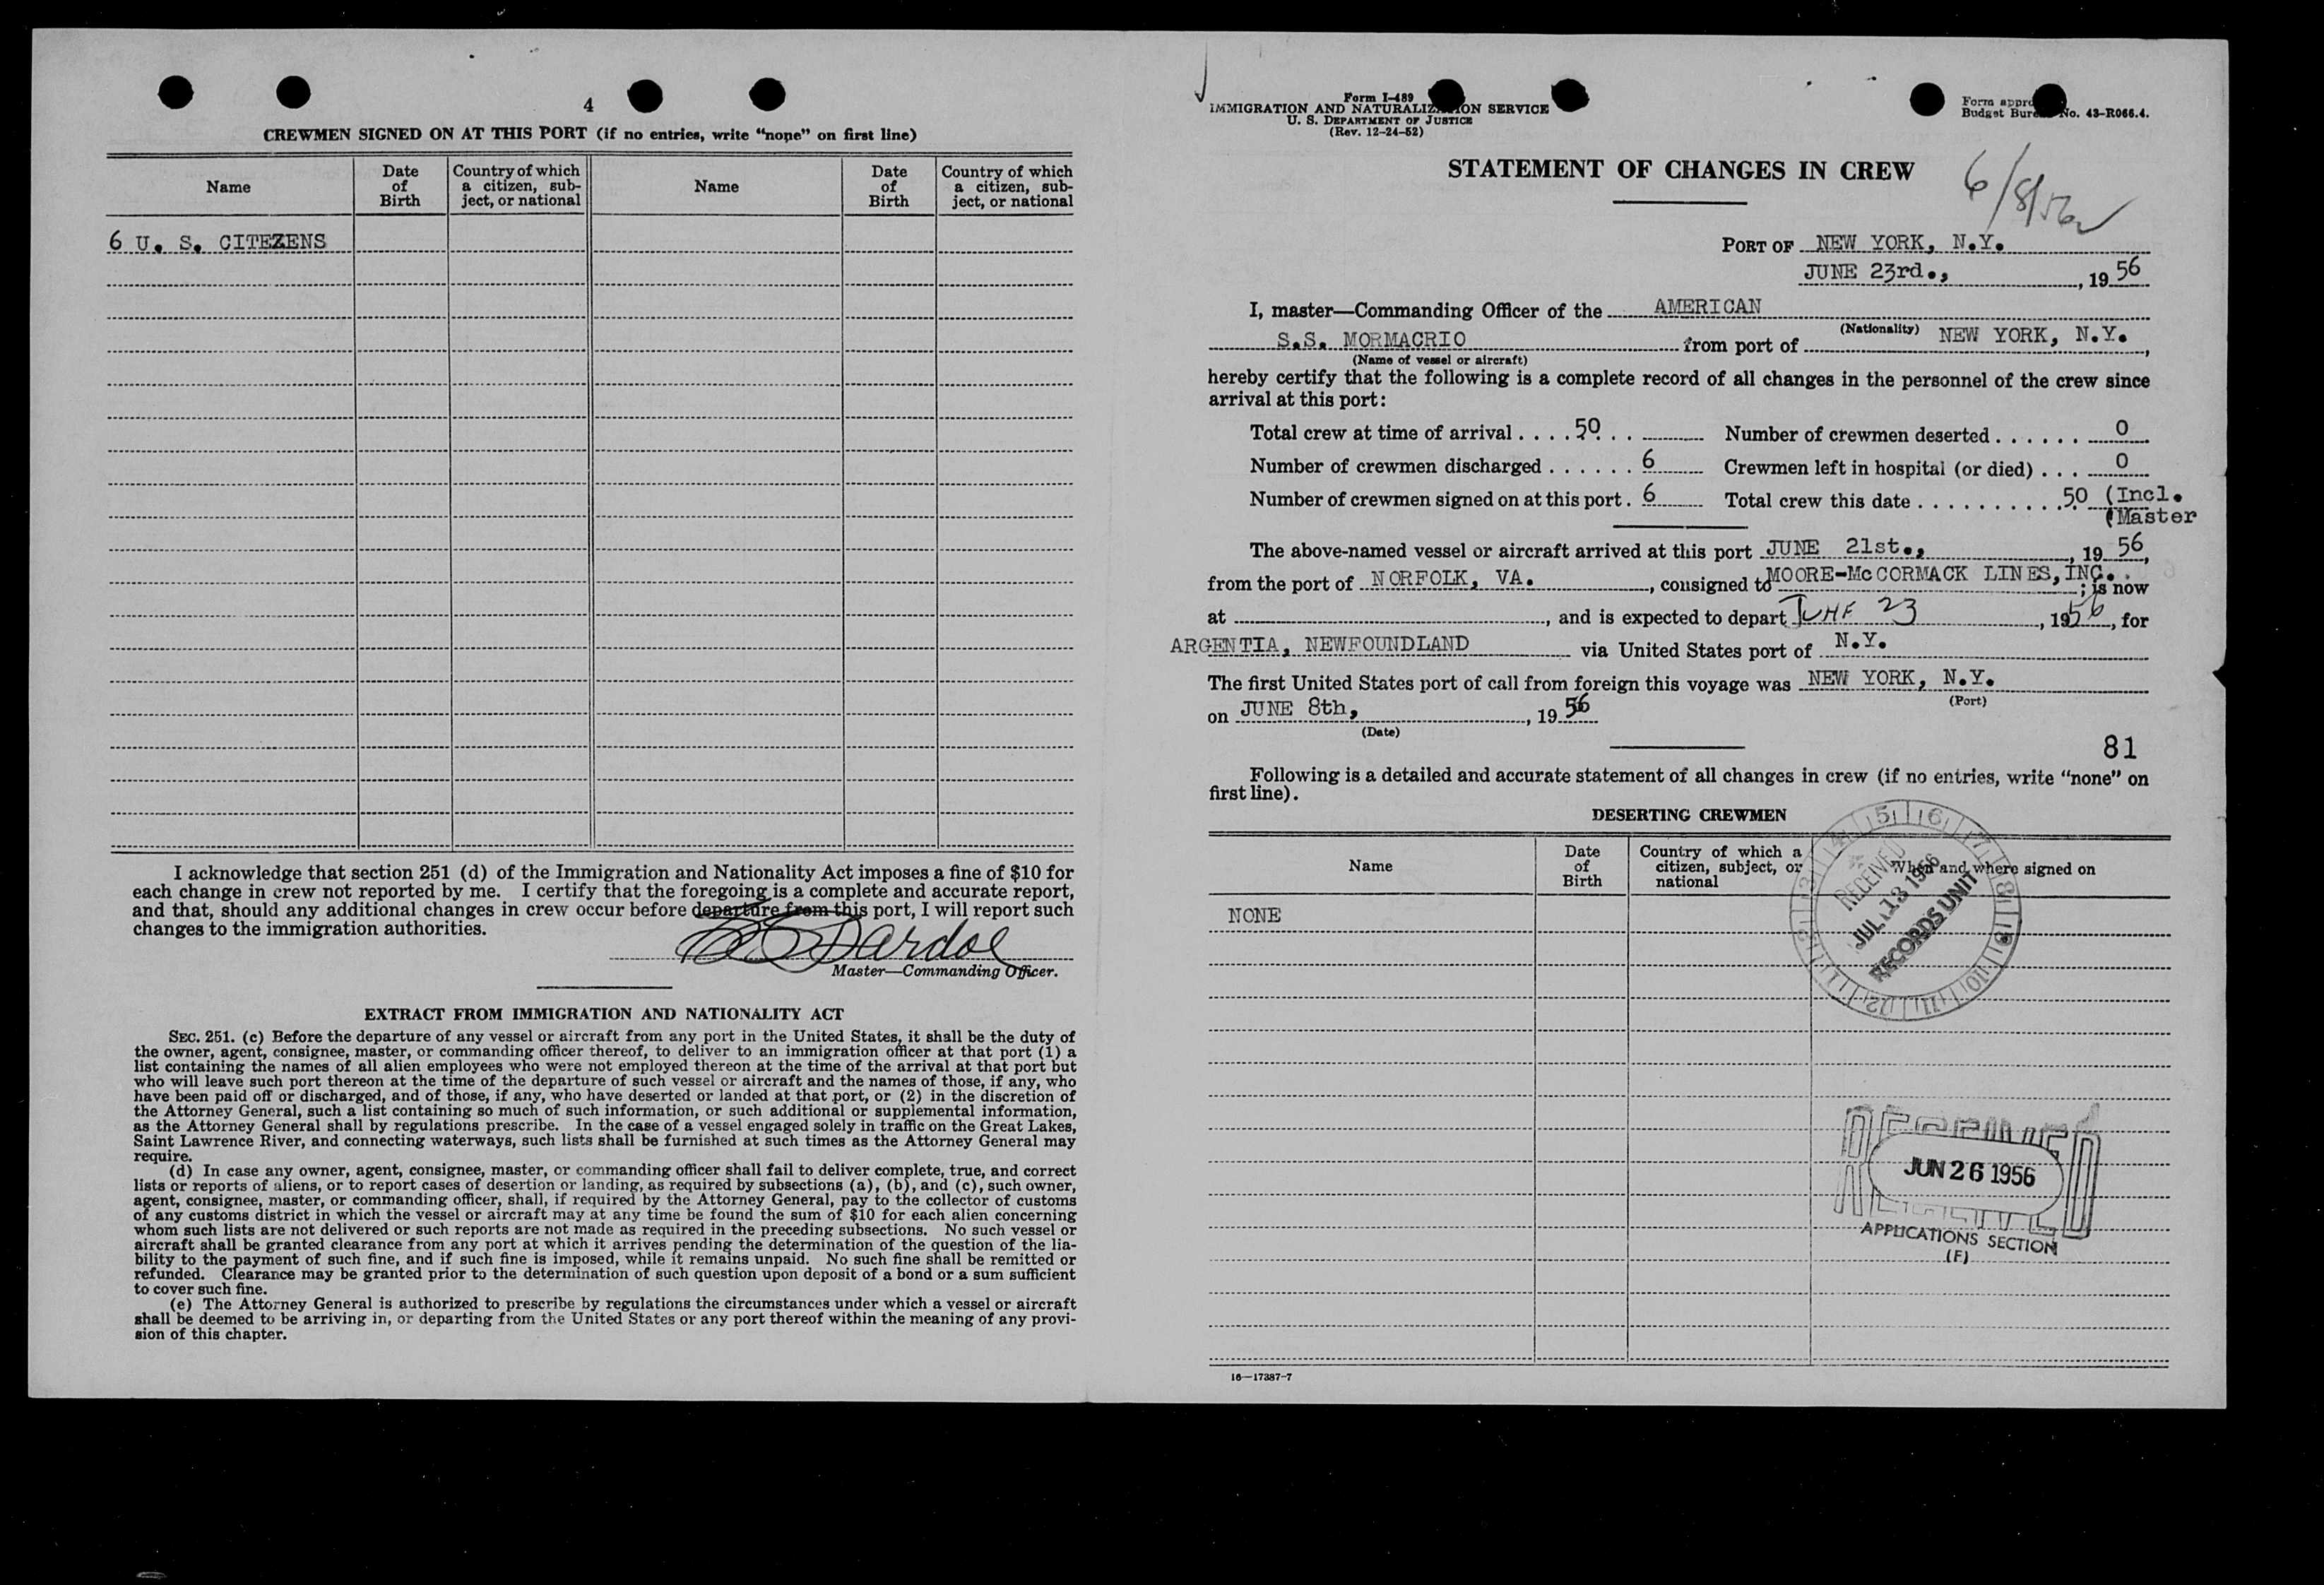 4
CREWMEN SIGNED ON AT THIS PORT (if no entries, write "none" on first line)
Name
Date of Birth
Country of which a citizen, subject, or national
Name
Date of Birth
Country of which a citizen, subject, or national
6 U. S. CITEZENS
I acknowledge that section 251 (d) of the Immigration and Nationality Act imposes a fine of $10 for
each change in crew not reported by me. I certify that the foregoing is a complete and accurate report,
and that, should any additional changes in crew occur before departure from this port, I will report such
changes to the immigration authorities.
Master—Commanding Officer.
EXTRACT FROM IMMIGRATION AND NATIONALITY ACT
SEC. 251. (c) Before the departure of any vessel or aircraft from any port in the United States, it shall be the duty of
the owner, agent, consignee, master, or commanding officer thereof, to deliver to an immigration officer at that port (1) a
list containing the names of all alien employees who were not employed thereon at the time of the arrival at that port but
who will leave such port thereon at the time of the departure of such vessel or aircraft and the names of those, if any, who
have been paid off or discharged, and of those, if any, who have deserted or landed at that port, or (2) in the discretion of
the Attorney General, such a list containing so much of such information, or such additional or supplemental information,
as the Attorney General shall by regulations prescribe. In the case of a vessel engaged solely in traffic on the Great Lakes,
Saint Lawrence River, and connecting waterways, such lists shall be furnished at such times as the Attorney General may
require.
(d) In case any owner, agent, consignee, master, or commanding officer shall fail to deliver complete, true, and correct
lists or reports of aliens, or to report cases of desertion or landing, as required by subsections (a), (b), and (c), such owner,
agent, consignee, master, or commanding officer, shall, if required by the Attorney General, pay to the collector of customs
of any customs district in which the vessel or aircraft may at any time be found the sum of $10 for each alien concerning
whom such lists are not delivered or such reports are not made as required in the preceding subsections. No such vessel or
aircraft shall be granted clearance from any port at which it arrives pending the determination of the question of the lia-
bility to the payment of such fine, and if such fine is imposed, while it remains unpaid. No such fine shall be remitted or
refunded. Clearance may be granted prior to the determination of such question upon deposit of a bond or a sum sufficient
to cover such fine.
(e) The Attorney General is authorized to prescribe by regulations the circumstances under which a vessel or aircraft
shall be deemed to be arriving in, or departing from the United States or any port thereof within the meaning of any provi-
sion of this chapter.
Form I-489
IMMIGRATION AND NATURALIZATION SERVICE
U. S. DEPARTMENT OF JUSTICE
(Rev. 12-24-52)
Form appro
Budget Bureau No. 43-R066.4.
STATEMENT OF CHANGES IN CREW
6/8/56
PORT OF NEW YORK, N.Y.
JUNE 23rd., , 19 56
I, master—Commanding Officer of the AMERICAN
(Nationality)
S.S. MORMACRIO from port of NEW YORK, N.Y. ,
(Name of vessel or aircraft)
hereby certify that the following is a complete record of all changes in the personnel of the crew since
arrival at this port:
Total crew at time of arrival . . . . 50 . . Number of crewmen deserted . . . . . . 0
Number of crewmen discharged . . . . . . 6 Crewmen left in hospital (or died) . . . 0
Number of crewmen signed on at this port . 6 Total crew this date . . . . . . . . . . 50 (Incl.
(Master
The above-named vessel or aircraft arrived at this port JUNE 21st., , 19 56,
from the port of NORFOLK, VA. , consigned to MOORE-McCORMACK LINES, INC. ; is now
at , and is expected to depart JUNE 23 , 1956, for
ARGENTIA, NEWFOUNDLAND via United States port of N.Y.
The first United States port of call from foreign this voyage was NEW YORK, N.Y.
(Port)
on JUNE 8th, , 19 56
(Date)
81
Following is a detailed and accurate statement of all changes in crew (if no entries, write "none" on
first line).
DESERTING CREWMEN
Name
Date of Birth
Country of which a citizen, subject, or national
When and where signed on
NONE
RECEIVED
JUL 13 1956
RECORDS UNIT
RECEIVED
JUN 26 1956
APPLICATIONS SECTION
(F)
16—17387-7